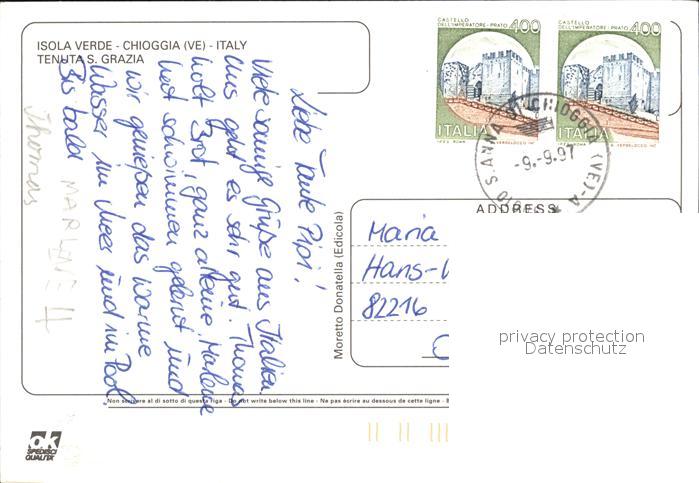 ISOLA VERDE - CHIOGGIA (VE) - ITALY
TENUTA S. GRAZIA
Liebe Tante Pipi!
Viele sonnige Grüße aus Italien.
Uns geht es sehr gut. Thomas
holt Brot, ganz alleine. Marlene
hat schwimmen gelernt und
wir genießen das warme
Wasser im Meer und im Pool
Bis bald
MARLENE 4
Thomas
CASTELLO DELL'IMPERATORE-PRATO 400
ITALIA
CASTELLO DELL'IMPERATORE-PRATO 400
ITALIA
S. ANNA DI CHIOGGIA (VE)-A
-9.-9.97
ADDRESS
Maria
Hans-
82216
Moretto Donatella (Edicola)
privacy protection
Datenschutz
Non scrivere al di sotto di questa riga - Do not write below this line - Ne pas écrire au dessous de cette ligne -
ok
SPEDISCI
QUALITA'